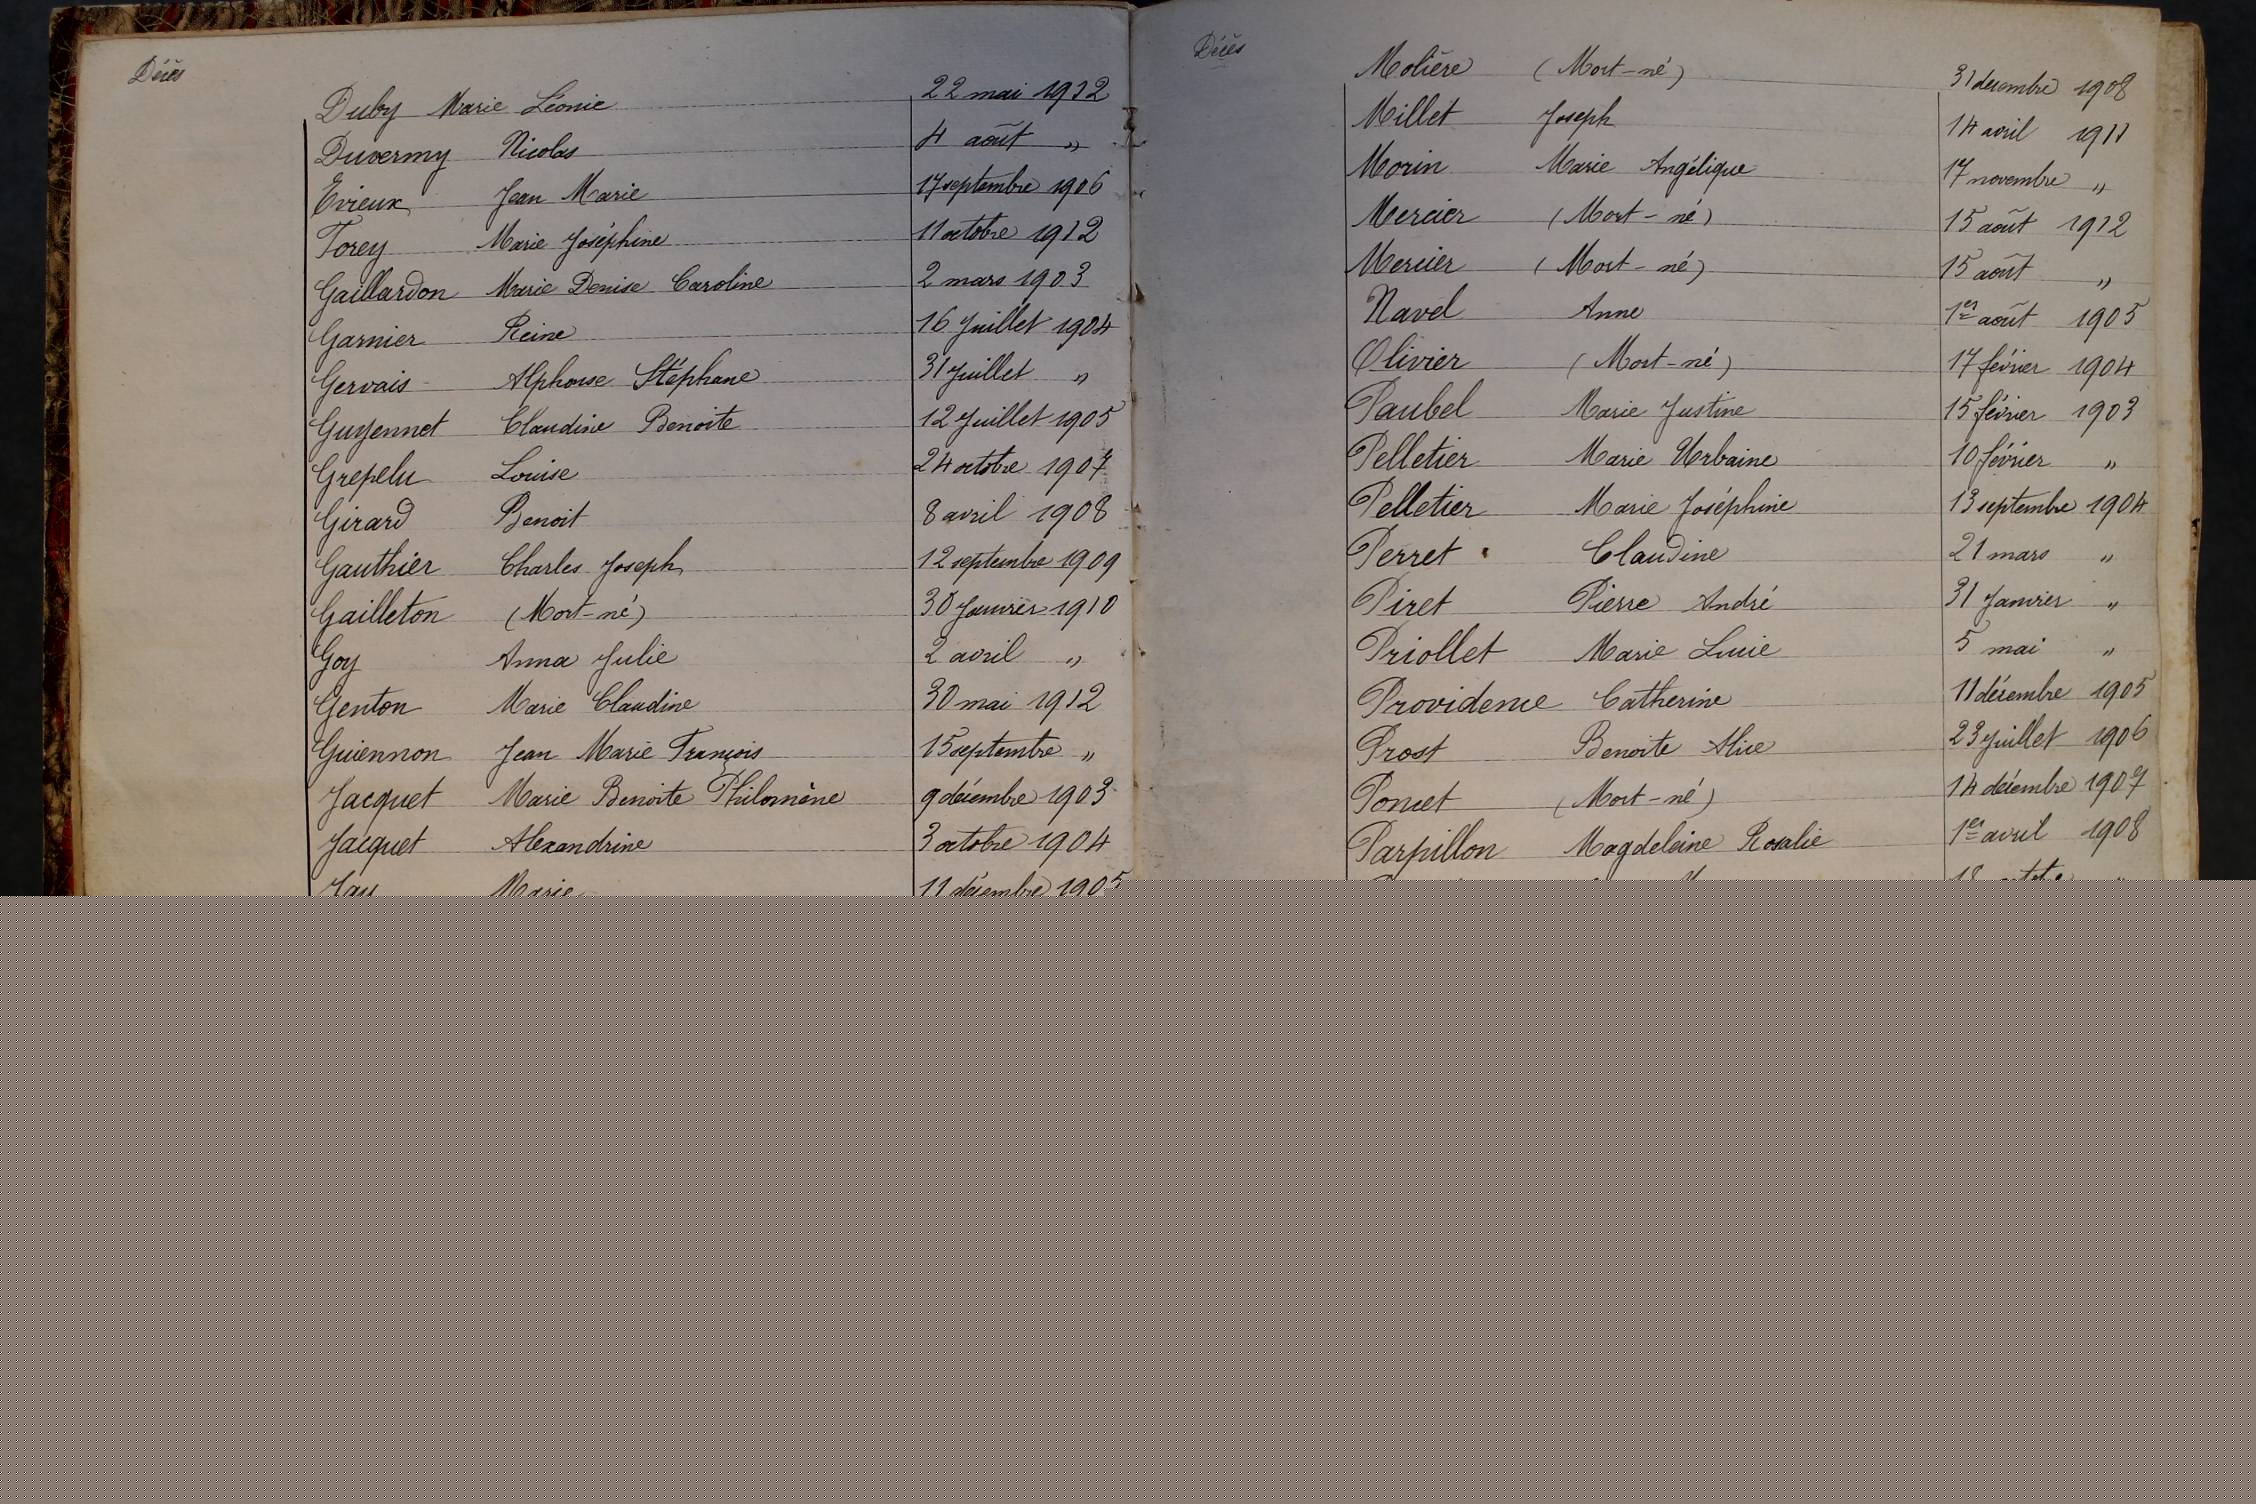 Décès
Duby Marie Léonie 22 mai 1912
Duvermy Nicolas 4 août "
Evieux Jean Marie 17 septembre 1906
Forey Marie Joséphine 11 octobre 1912
Gaillardon Marie Denise Caroline 2 mars 1903
Garnier Reine 16 Juillet 1904
Gervais Alphonse Stéphane 31 Juillet "
Guyennet Claudine Benoite 12 Juillet 1905
Grepelu Louise 24 octobre 1907
Girard Benoit 8 avril 1908
Gauthier Charles Joseph 12 septembre 1909
Gailleton (Mort-né) 30 Janvier 1910
Goy Anna Julie 2 avril "
Genton Marie Claudine 30 mai 1912
Guiennon Jean Marie François 15 septembre "
Jacquet Marie Benoite Philomène 9 décembre 1903
Jacquet Alexandrine 3 octobre 1904
Marie 11 décembre 1905
Décès
Molière (Mort-né) 31 décembre 1908
Millet Joseph 14 avril 1911
Morin Marie Angélique 17 novembre "
Mercier (Mort-né) 15 août 1912
Mercier (Mort-né) 15 août "
Navel Anne 1er août 1905
Olivier (Mort-né) 17 février 1904
Paubel Marie Justine 15 février 1903
Pelletier Marie Urbaine 10 février "
Pelletier Marie Joséphine 13 septembre 1904
Perret Claudine 21 mars "
Piret Pierre André 31 Janvier "
Priollet Marie Lucie 5 mai "
Providence Catherine 11 décembre 1905
Prost Benoite Alice 23 Juillet 1906
Poncet (Mort-né) 14 décembre 1907
Parpillon Magdeleine Rosalie 1er avril 1908